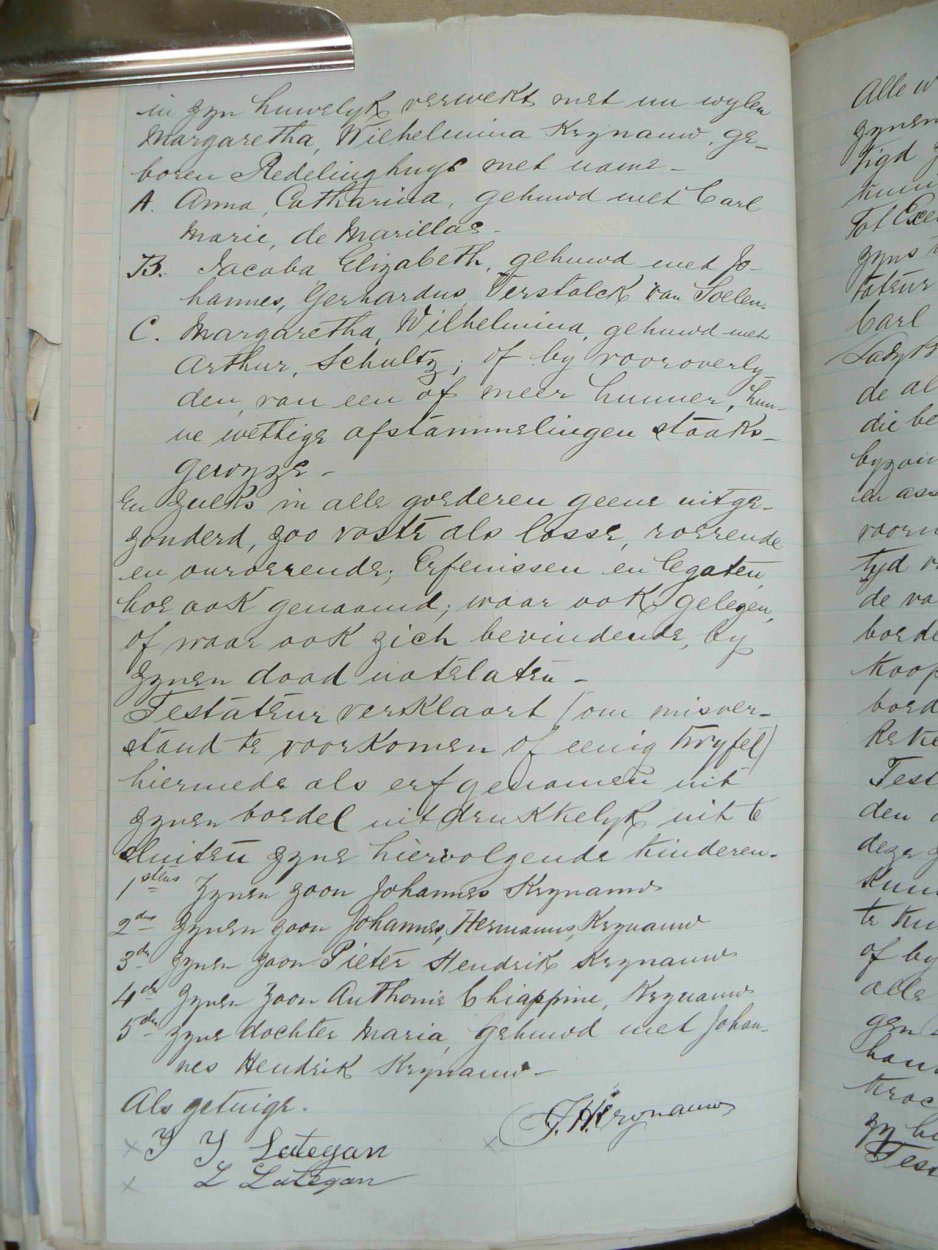 in zyn huwelyk verwekt met nu wylen
Margaretha, Wilhelmina Krynauw, ge-
boren Redelinghuys met name -
A. Anna, Catharina, gehuwd met Carl
Marie, de Marillac -
B. Jacoba Elizabeth, gehuwd met Jo-
hannes, Gerhardus, Verstolck van Soelen,
C. Margaretha, Wilhelmina, gehuwd met
Arthur, Schultz; of by vooroverly-
den, van een of meer hunner, hun-
ne wettige afstammelingen staaks-
gewyze -
En zulks in alle goederen geene uitge-
zonderd, zoo vaste als losse, roerende
en onroerende; Erfenissen en legaten,
hoe ook genaamd; waar ook gelegen,
of waar ook zich bevindende, by
zynen dood natelaten -
Testateur verklaart (om misver-
stand te voorkomen of eenig twyfel)
hiermede als erfgenamen uit
zynen boedel uitdrukkelyk uit te
sluiten zyne hiervolgende kinderen -
1stens Zynen zoon Johannes Krynauw
2de zynen zoon Johannes, Hermanus, Krynauw
3de zynen zoon Pieter Hendrik Krynauw
4de zynen zoon Anthonie Chiappini, Krynauw
5de zyne dochter Maria, gehuwd met Johan-
nes Hendrik Krynauw -
Als getuige.
J. H. Krynauw
x Y Y Lategan x
x L Lategan
Alle w
zynen
tigd
tot Exe
zyns
tateur
Carl
de al
die be
byzon
en ass
voorn
tyd v
de va
boede
koop
boed
Reke
Test
den
deze
kun
te ku
of by
alle
gen
han
zy
Test